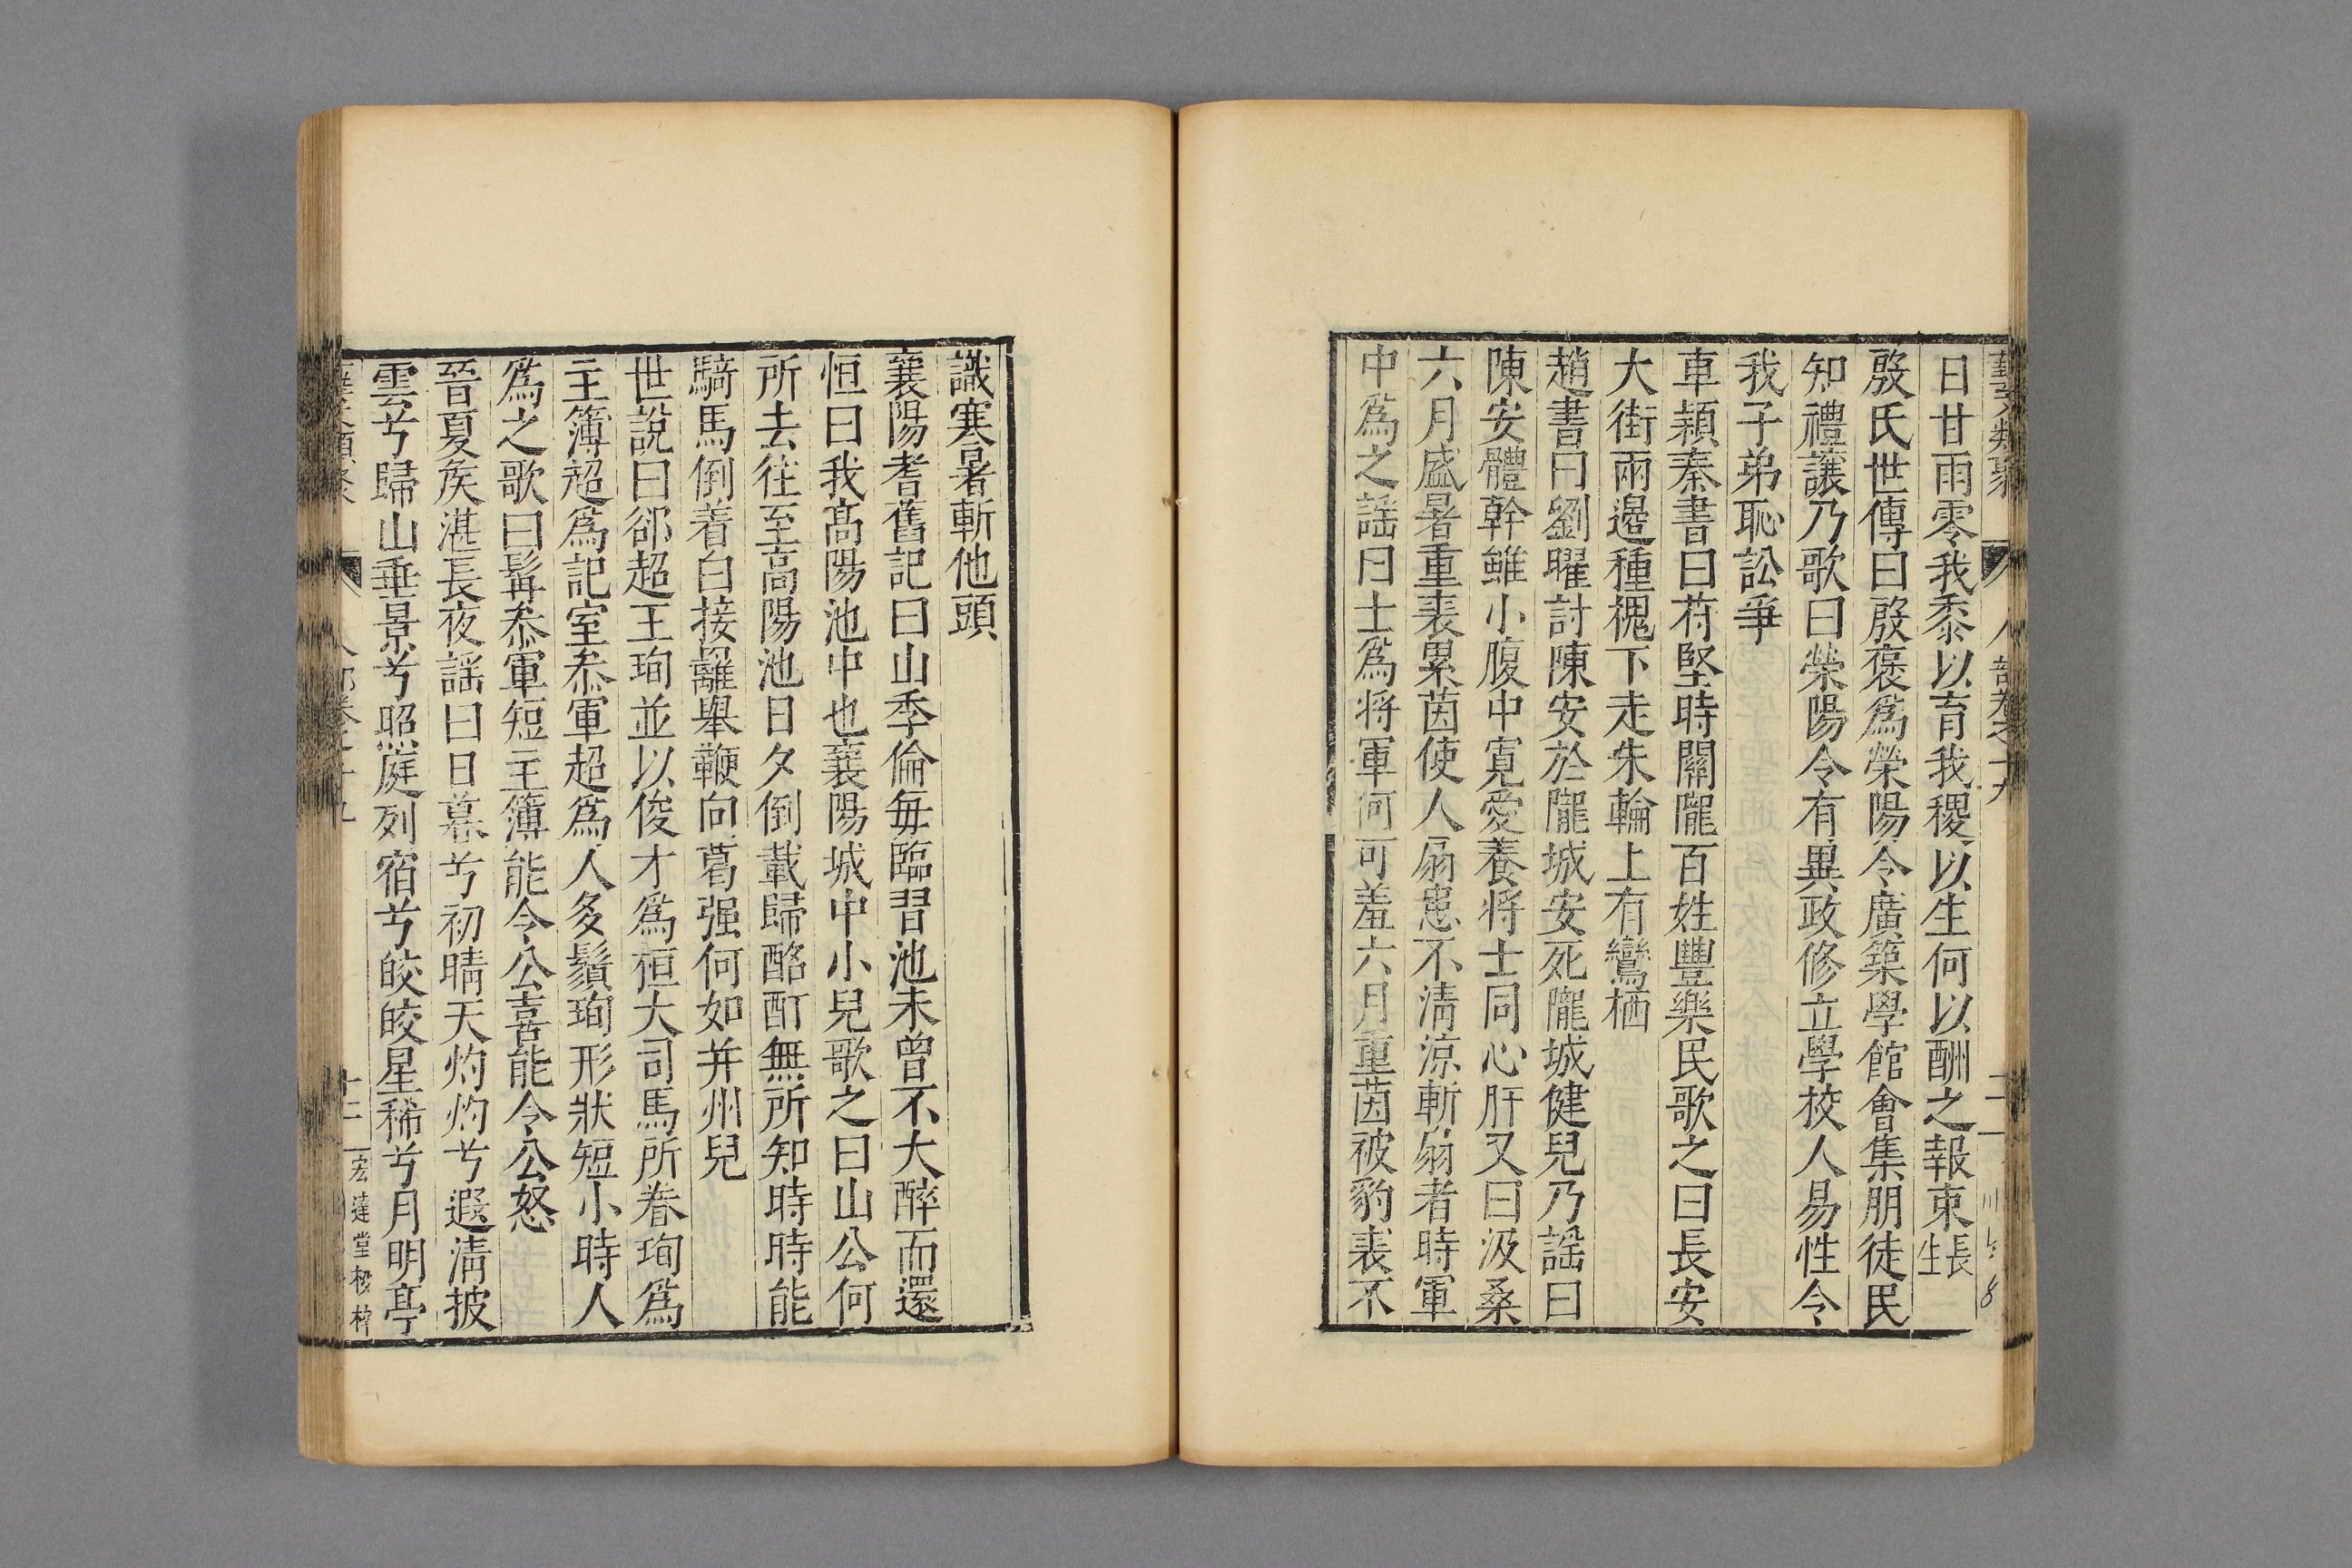 日甘雨零我黍以育我稷以生何以酬之報束長生
殷氏世傳曰殷褒爲榮陽令廣築學館會集朋徒民
知禮讓乃歌曰榮陽令有異政修立學校人易性令
我子弟恥訟爭
車頴秦書曰苻堅時關隴百姓豐樂民歌之曰長安
大街兩邊種槐下走朱輪上有鸞栖
趙書曰劉曜討陳安於隴城安死隴城健兒乃謡曰
陳安體幹雖小腹中寛愛養將士同心肝又曰汲桑
六月盛暑重裘累茵使人扇患不清涼斬扇者時軍
中爲之謡曰士爲將軍何可羞六月重茵被豹裘不
識寒暑斬他頭
襄陽耆舊記曰山季倫毎臨習池未曾不大醉而還
恒曰我髙陽池中也襄陽城中小兒歌之曰山公何
所去往至高陽池日夕倒載歸酩酊無所知時時能
騎馬倒着白接䍦舉鞭向葛强何如并州兒
世說曰郤超王珣並以俊才爲桓大司馬所眷珣爲
主簿超爲記室叅軍超爲人多鬚珣形狀短小時人
爲之歌曰髯叅軍短主簿能令公喜能令公怒
晉夏矦湛長夜謡曰日暮兮初晴天灼灼兮遐清披
雲兮歸山垂景兮照庭列宿兮皎皎星稀兮月明亭
人部卷之十九
十二
宏達堂校梓